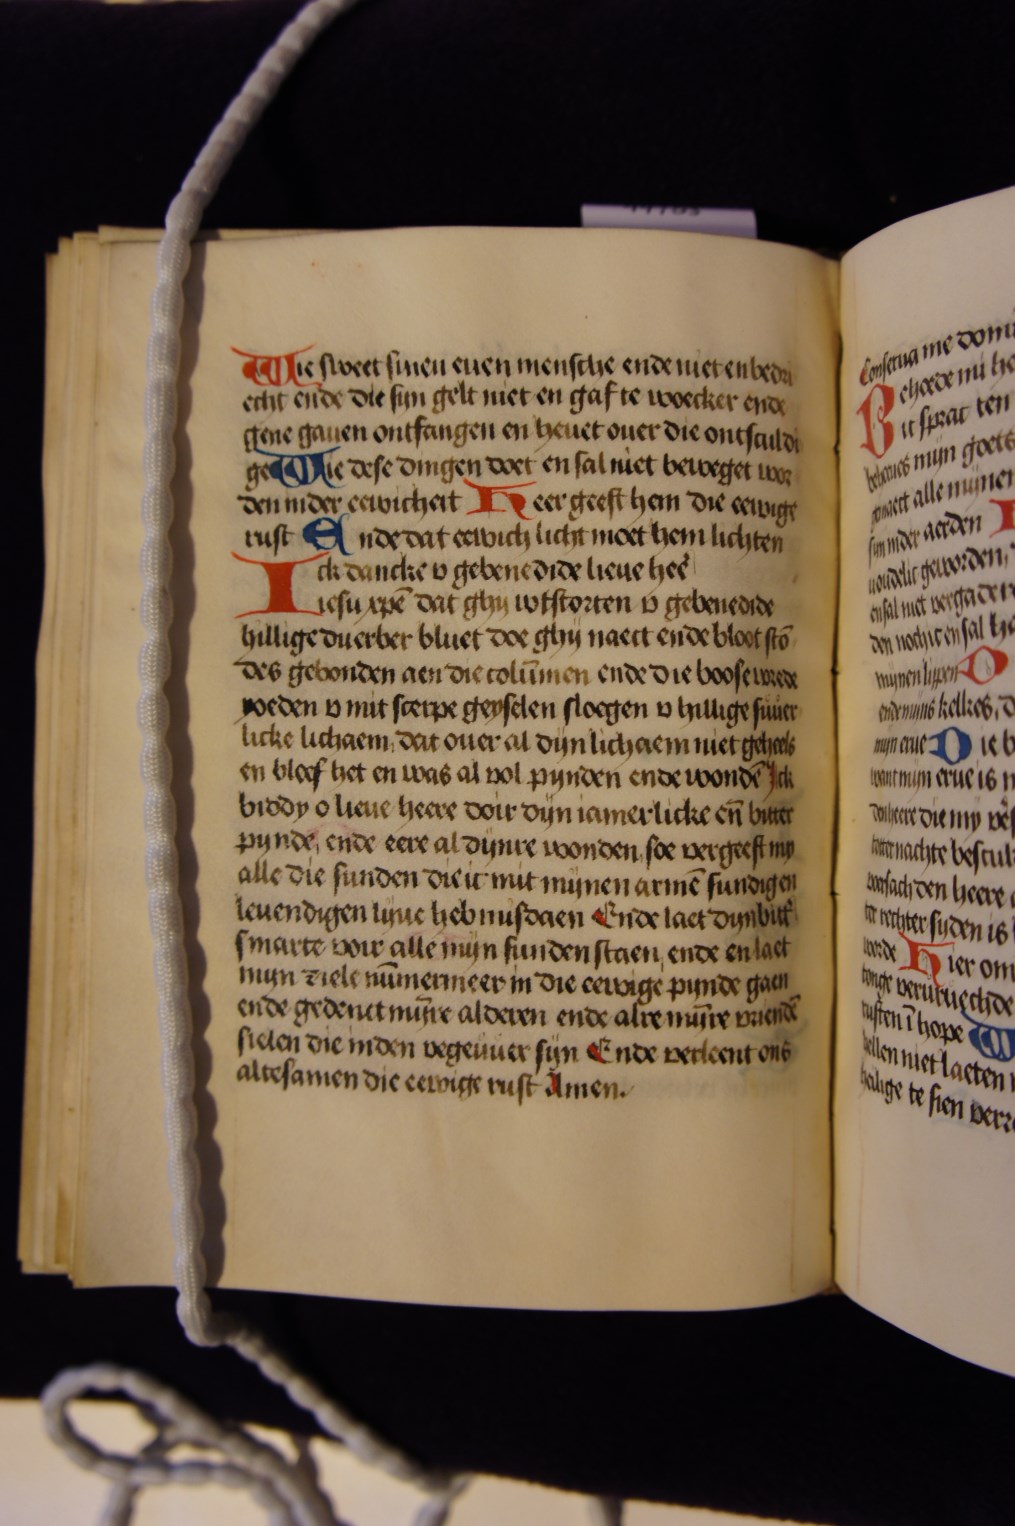 Wie sweet sinen euen mensche ende niet en bedri
echt ende die sijn gelt niet en gaf te woecker ende
gene gauen ontfangen en heuet ouer die ontsculdi
ge Wie dese dingen doet en sal niet beweget wor
den inder eewicheit Heer geeft hem die eewige
rust Ende dat eewich licht moet hem lichten
Ick dancke v gebenedide lieue heē
iesu xpē dat ghij wtstorten v gebenedide
hillige duerber bluet doe ghij naect ende bloot stō
des gebonden aen die colūmen ende die boose wrede
woeden v mit scerpe geyselen sloegen v hillige suuer
licke lichaem, dat ouer al dijn lichaem niet geheels
en bleef het en was al vol pynden ende wondē Ick
biddy o lieue heere doir dijn iamerlicke en̄ bitter
pynde, ende eere al dijnre wonden, soe vergeeft my
alle die sunden die ic mit mijnen armē sundigen
leuendigen lijue heb misdaen Ende laet dyn bittʼ
smarte voir alle mijn sunden staen, ende en laet
mijn ziele nūmermeer in die eewige pynde gaen
ende gedenct mijn̄re alderen ende alre mijn̄re vriendē
sielen die inden vegeuuer sijn Ende verleent ons
altesamen die eewige rust Amen.
Conserua me domi
Behoede mi he
ic sprac ten
behoeues mijn goets
gemaect alle mijnen
sijn inder aerden
en sal niet vergaderē
den noch ic en sal he
mijnen lippen D
ende mijns kelkes, D
mijn erue Die b
want mijn erue is m
den heere die my vēs
totter nachte bescul
voirsach den heere a
ter rechter syden is
worde Hier om
tonge verurvechde
rusten ī hope W
hellen niet laeten
heilige te sien verro